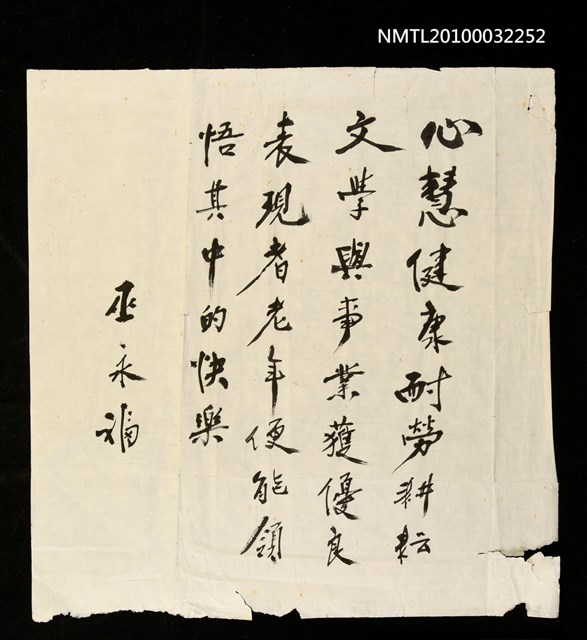 NMTL20100032252
心慧健康耐勞耕耘
文學與事業獲優良
表現者老年便能領
悟其中的快樂
巫永福